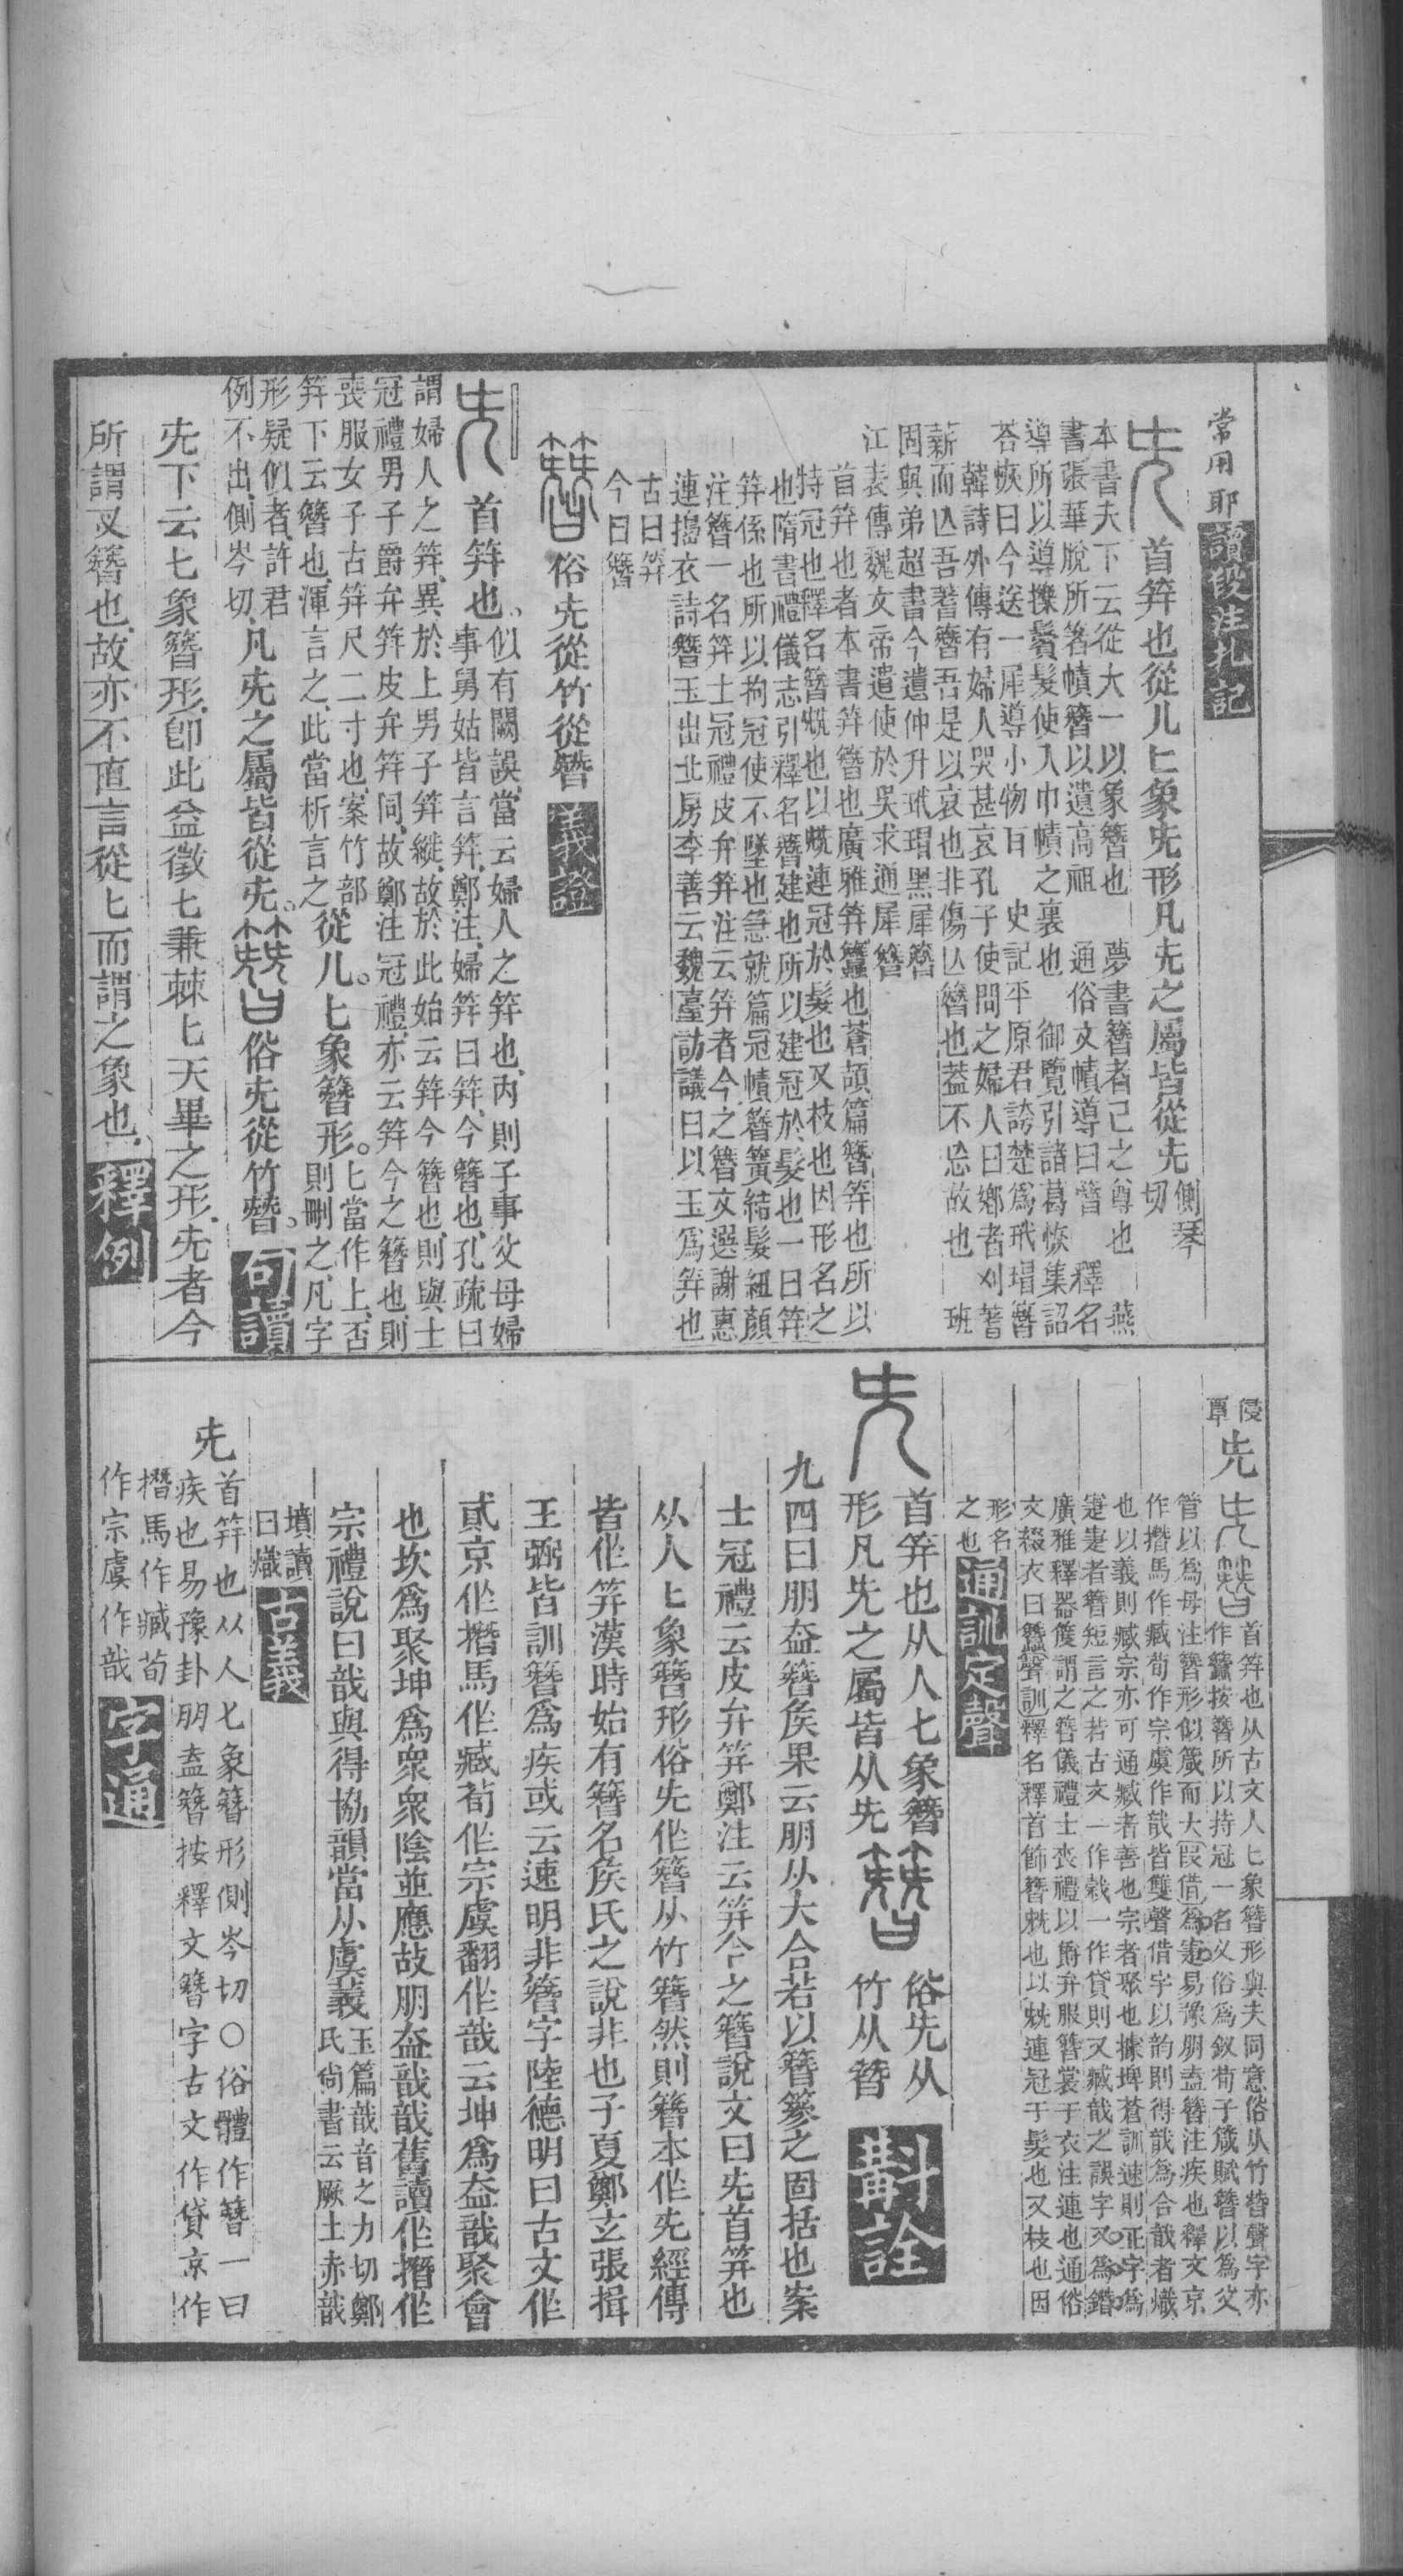 常用耶 讀段注札記
首筓也從儿匕象兂形凡兂之屬皆從兂側琴切
本書夫下云從大一以象簪也 夢書簪者己之尊也 燕
書張華脫所筓幘簪以遺高祖 通俗文幘導曰簪 釋名
導所以導擽鬢髮使入巾幘之裏也 御覽引諸葛恢集詔
荅恢曰今送一犀導小物百 史記平原君誇楚爲玳瑁簪
韓詩外傳有婦人哭甚哀孔子使問之婦人曰鄕者刈蓍
薪而亾吾蓍簪吾是以哀也非傷亾簪也葢不忘故也 班
固與弟超書今遺仲升玳瑁黑犀簪
江表傳魏文帝遣使於吳求通犀簪
首筓也者本書筓簪也廣雅筓蠶也蒼頡篇簪筓也所以
特冠也釋名簪兓也以兓連冠於髮也又枝也因形名之
也隋書禮儀志引釋名簪建也所以建冠於髮也一曰筓
筓係也所以拘冠使不墜也急就篇冠幘簪簧結髮紐顏
注簪一名筓士冠禮皮弁筓注云筓者今之簪文選謝惠
連擣衣詩簪玉出北房李善云魏臺訪議曰以玉爲筓也
古曰筓
今曰簪
俗兂從竹從朁 義證
首筓也。似有闕誤、當云婦人之筓也、內則子事父母婦
事舅姑皆言筓、鄭注、婦筓曰筓、今簪也、孔疏曰
謂婦人之筓、異於上男子筓縰、故於此始云筓今簪也、則與士
冠禮男子爵弁筓皮弁筓同、故鄭注冠禮、亦云筓今之簪也、則
喪服女子古筓尺二寸也、案竹部
筓下云簪也、渾言之、此當析言之從儿。匕象簪形。匕當作上、否
形疑佀者、許君則刪之、凡字
例不出、側岑切、凡兂之屬皆從兂。俗兂從竹朁。 句讀
兂下云七象簪形、卽此益徵七兼棘匕天畢之形、兂者今
所謂叉簪也、故亦不直言從匕而謂之象也、 釋例
侵覃 兂 首筓也从古文人匕象簪形與夫同意俗从竹朁聲字亦
作䕭按簪所以持冠一名义俗爲釵荀子箴賦簪以爲父
管以爲母注簪形似箴而大叚借爲寁易豫朋盍簪注疾也釋文京
作撍馬作臧荀作宗虞作戠皆雙聲借字以韵則得戠爲合戠者熾
也以義則臧宗亦可通臧者善也宗者聚也據埤蒼訓速則正字爲
寁寁者簪短言之若古文一作㦲一作貸則又臧戠之誤字又爲鐕
廣雅釋器䈠謂之簪儀禮士喪禮以爵弁服簪裳于衣注連也通俗
文綴衣曰簪聲訓釋名釋首飾簪兓也以兓連冠于髮也又枝也因
形名
之也 通訓定聲
首筓也从人七象簪
形凡兂之屬皆从兂 俗兂从
竹从朁 斠詮
九四曰朋盍簪矦果云朋从大合若以簪篸之固括也案
士冠禮云皮弁筓鄭注云筓今之簪說文曰兂首筓也
从人匕象簪形俗兂作簪从竹簪然則簪本作兂經傳
皆作筓漢時始有簪名矦氏之說非也子夏鄭玄張揖
王弼皆訓簪爲疾或云速明非簪字陸德明曰古文作
貳京作撍馬作臧荀作宗虞翻作戠云坤爲盍戠聚會
也坎爲聚坤爲衆衆陰並應故朋盍戠戠舊讀作撍作
宗禮說曰戠與得協韻當从虞義玉篇戠音之力切鄭
氏尙書云厥土赤戠
墳讀
曰熾 古義
兂 首筓也从人七象簪形側岑切〇俗體作簪一曰
疾也易豫卦朋盍簪按釋文簪字古文作貸京作
撍馬作臧荀
作宗虞作戠 字通